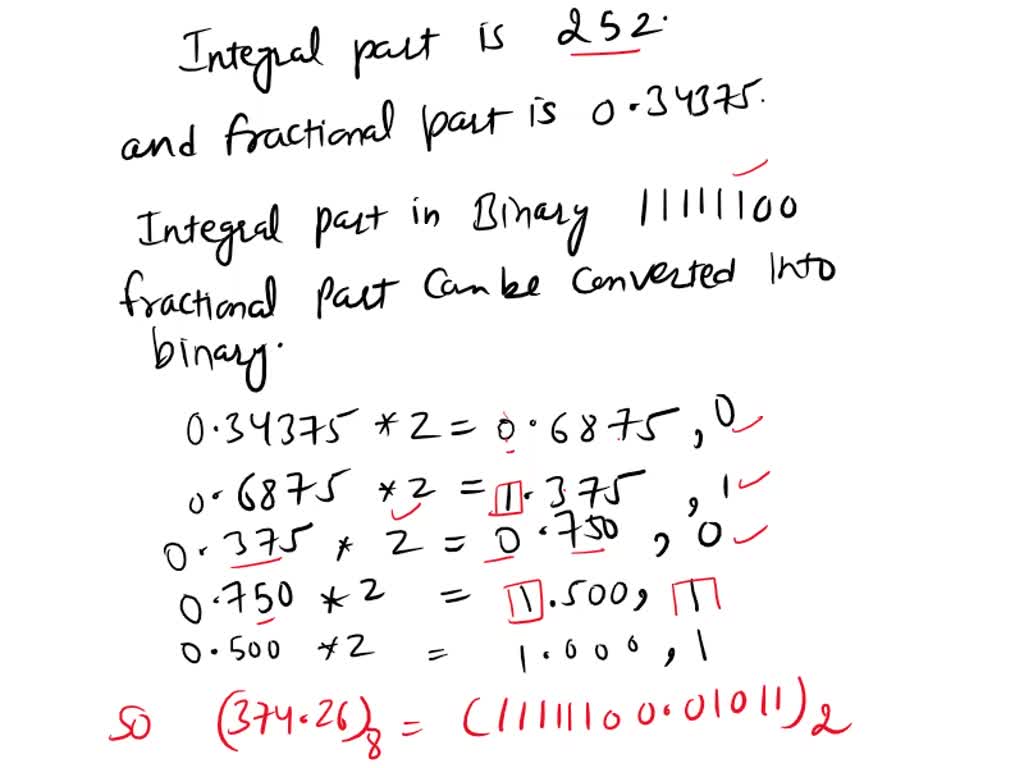 Integral part is 252.
and fractional part is 0.34375.
Integral part in Binary 11111100
fractional part can be converted into
binary.
0.34375 * 2 = 0.6875, 0
0.6875 * 2 = 1.375, 1
0.375 * 2 = 0.750, 0
0.750 * 2 = 1.500, 1
0.500 * 2 = 1.000, 1
so (374.26)8 = (11111100.01011)2